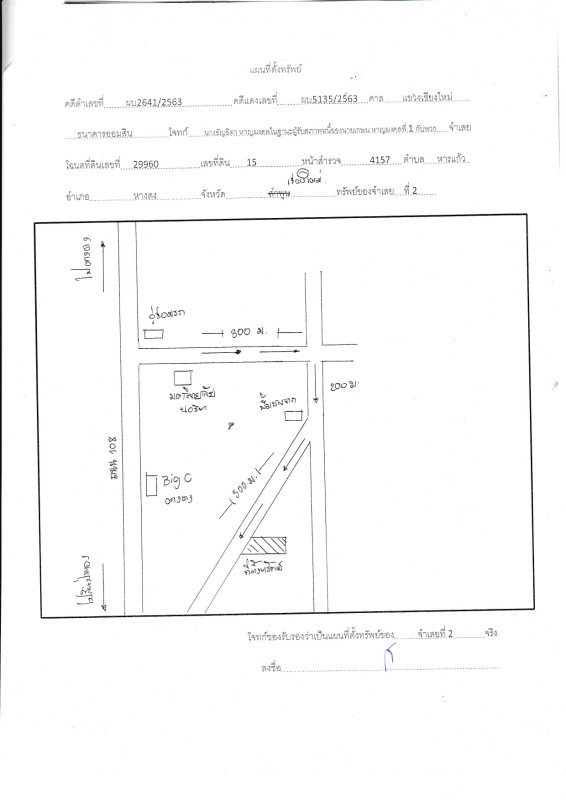 แผนที่ตั้งทรัพย์
คดีดำเลขที่ ผบ2641/2563 คดีแดงเลขที่ ผบ5135/2563 ศาล แขวงเชียงใหม่
ธนาคารออมสิน โจทก์ ในฐานะผู้รับสภาพหนี้ของนายเกษม หาญมงคลที่ 1 กับพวก จำเลย
โฉนดที่ดินเลขที่ 29960 เลขที่ดิน 15 หน้าสำรวจ 4157 ตำบล หารแก้ว
เชียงใหม่
อำเภอ หางดง จังหวัด ลำพูน ทรัพย์ของจำเลย ที่ 2
300 ม.
200 ม.
ถนน 108
Big C
300 ม.
ที่ตั้งทรัพย์
โจทก์ขอรับรองว่าเป็นแผนที่ตั้งทรัพย์ของ จำเลยที่ 2 จริง
ลงชื่อ